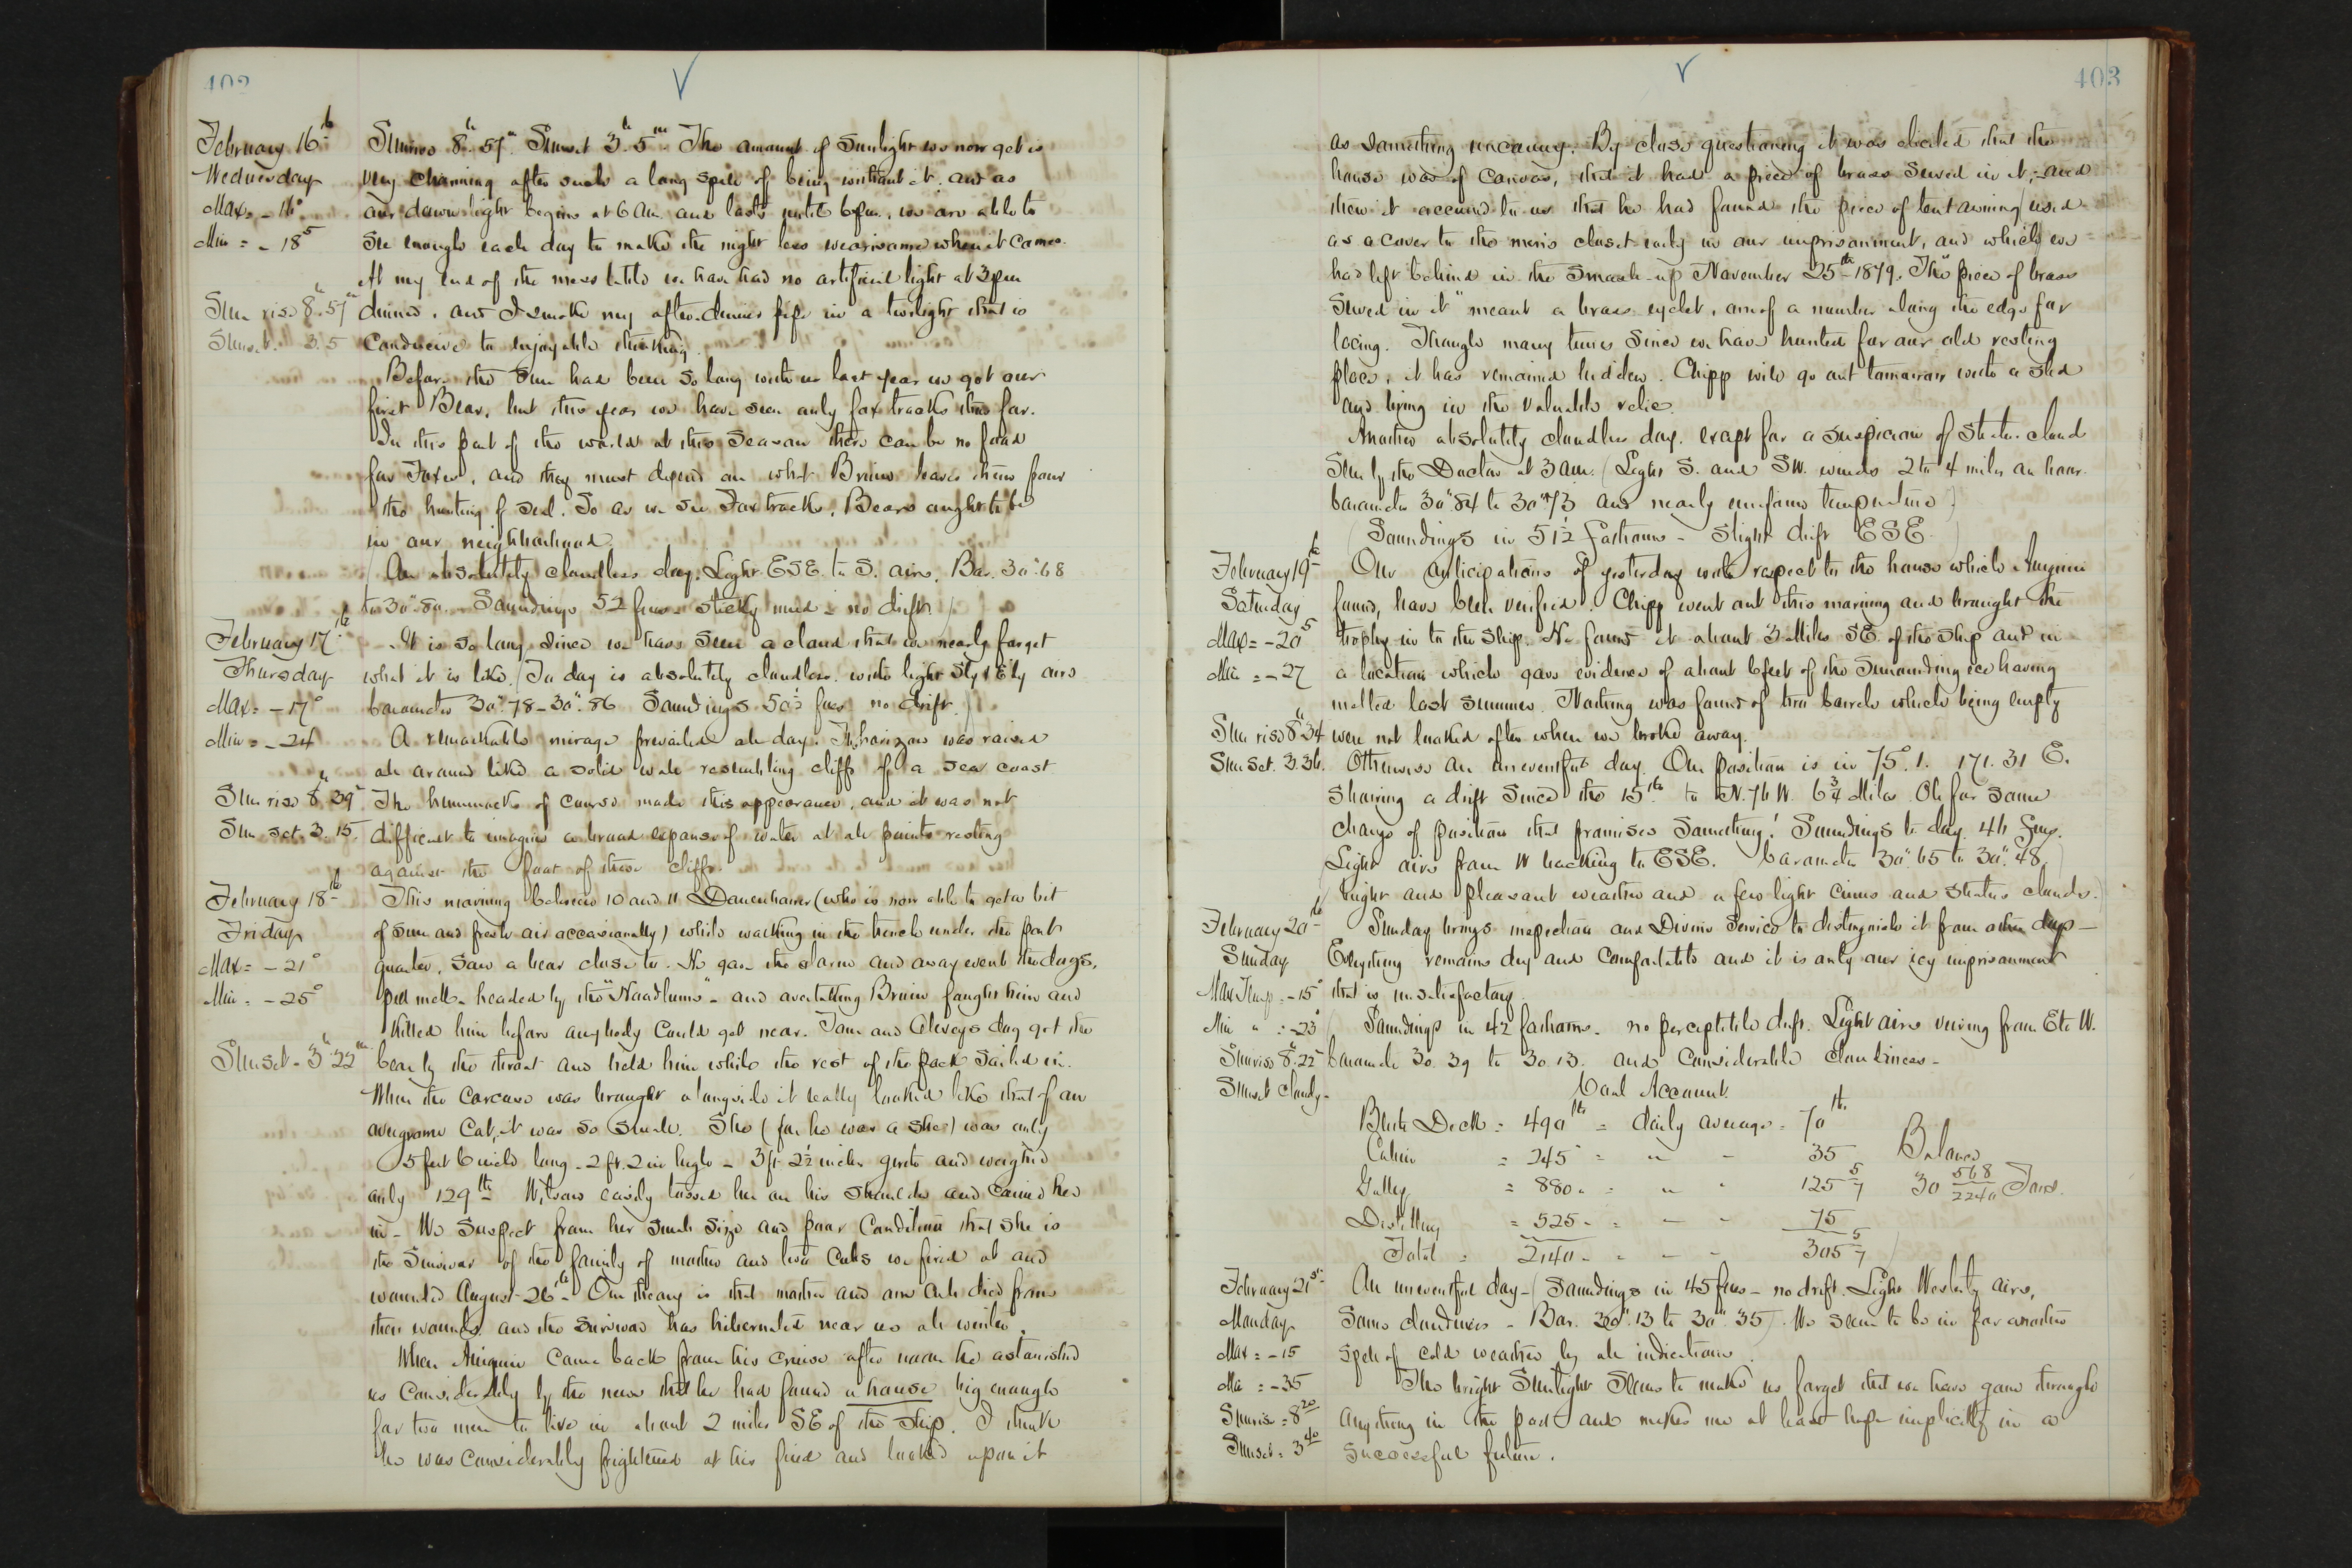 402
February 16th
Wednesday
Max = -16°
Min = -18.5
Sun rise 8h 57m
Sunset 3. 5
Sunrise 8h. 57m. Sunset 3h. 5m. The amount of Sunlight we now get is
very charming after such a long spell of being without it, and as
our dawn light begins at 6 AM and lasts until 6 pm, we are able to
see enough each day to make the night less wearisome when it comes.
At my end of the mess table we have had no artificial light at 3 pm
dinner, and I smoke my after-dinner pipe in a twilight that is
conducive to enjoyable thinking.
Before the Sun had been so long with us last year we got our
first Bear, but this year we have seen only fox tracks thus far.
In this part of the world at this season there can be no food
for Foxes, and they must depend on what Bruin leaves them from
the hunting of seal. So as we see Fox tracks, Bears ought to be
in our neighborhood.
(An absolutely cloudless day. Light ESE. to S. airs. Bar. 30".68
to 30".80. Soundings 52 fms sticky mud - no drift.)
February 17th
Thursday
Max = -17°
Min = -24
Sun rise 8h 39m
Sun set. 3. 15.
It is so long since we have seen a cloud that we nearly forget
what it is like. (To day is absolutely cloudless. with light Sly & Ely airs
barometer 30".78 - 30".86 Soundings 50½ fms no drift.)
A remarkable mirage prevailed all day. The horizon was raised
all around like a solid wall resembling cliffs of a sea coast.
The hummocks of course made this appearance, and it was not
difficult to imagine a broad expanse of water at all points resting
against the foot of these cliffs.
February 18th
Friday
Max = -21°
Min = -25°
Sunset - 3h 22m
This morning between 10 and 11 Danenhower (who is now able to get a bit
of sun and fresh air occasionally) while walking in the trench under the port
quarter, saw a bear close to. He gave the alarm and away went the dogs,
pell mell - headed by the "Hoodlums" - and overtaking Bruin fought him and
killed him before anybody could get near. Tom and Alexeys dog got the
bear by the throat and held him while the rest of the pack sailed in.
When the carcass was brought alongside it really looked like that of an
overgrown Cat, it was so small. She (for he was a she) was only
5 feet 6 inches long - 2 ft. 2 in high - 3 ft 2½ inches girth and weighed
only 129 lbs. Wilson easily tossed her on his shoulder and carried her
in - We suspect from her small size and poor condition that she is
the survivor of the family of mother and two Cubs we fired at and
wounded August 26th - Our theory is that mother and one cub died from
their wounds and the survivor has hibernated near us all winter.
When Aneguin came back from his cruise after noon he astonished
us considerably by the news that he had found a house big enough
for two men to live in about 2 miles SE of the ship. I think
he was considerably frightened at his find and looked upon it
403
as something uncanny. By close questioning it was elicited that the
house was of Canvas, that it had a piece of brass sewed in it, - and
then it occurred to us that he had found the piece of tent awning used
as a cover to the men's closet early in our imprisonment, and which we
had left behind in the smash-up November 25th 1879. The "piece of brass
sewed in it" meant a brass eyelet, one of a number along the edge for
lacing. Though many times since we have hunted for our old resting
place, it has remained hidden. Chipp will go out tomorrow with a sled
and bring in the valuable relic.
Another absolutely cloudless day. except for a suspicion of stratus cloud
seen by the Doctor at 3 am. (Light S. and SW. winds 2 to 4 miles an hour.
barometer 30".84 to 30".73 and nearly uniform temperature)
(Soundings in 51½ fathoms - Slight drift ESE.)
February 19th
Saturday
Max = -20.5
Min = -27
Sun rise 8h 34
Sun set. 3. 36.
Our anticipations of yesterday with respect to the house which Aneguin
found, have been verified. Chipp went out this morning and brought the
trophy in to the ship. He found it about 3 miles SE. of the ship and in
a location which gave evidence of about 6 feet of the surrounding ice having
melted last summer. Nothing was found of two barrels which being empty
were not looked after when we broke away.
Otherwise an uneventful day. Our position is in 75°. 1. 171. 31 E.
showing a drift since the 15th to N. 76 W. 6¾ Miles. Oh for some
change of position that promises something! Soundings to day 46 fms.
Light airs from W backing to ESE. barometer 30".65 to 30".48.
bright and pleasant weather and a few light cirrus and stratus clouds.)
February 20th
Sunday
Max Temp = -15°
Min " = -23°
Sunrise 8h. 22m
Sunset cloudy -
Sunday brings inspection and Divine Service to distinguish it from other days -
Everything remains dry and comfortable and it is only our icy imprisonment
that is unsatisfactory.
(Soundings in 42 fathoms - no perceptible drift. Light airs veering from E to W.
barometer 30. 39 to 30. 13. and considerable cloudiness -
Coal Account.
Berth Deck = 490 lbs = daily average = 70 lbs.
Cabin = 245 " = " " 35 Balance
Galley = 880 " = " " 125 5/7 30 568/2240 Tons.
Distilling = 525 " = " " 75
Total = 2140 " = " " 305 5/7
February 21st
Monday
Max = -15
Min = -35
Sunrise = 8 20
Sunset = 3 40
An uneventful day - (Soundings in 45 fms - no drift. Light Westerly airs,
some cloudiness - Bar. 30".13 to 30".35). We seem to be in for another
spell of cold weather by all indications.
The bright Sunlight seems to make us forget that we have gone through
anything in the past and makes me at least hope implicitly in a
successful future.